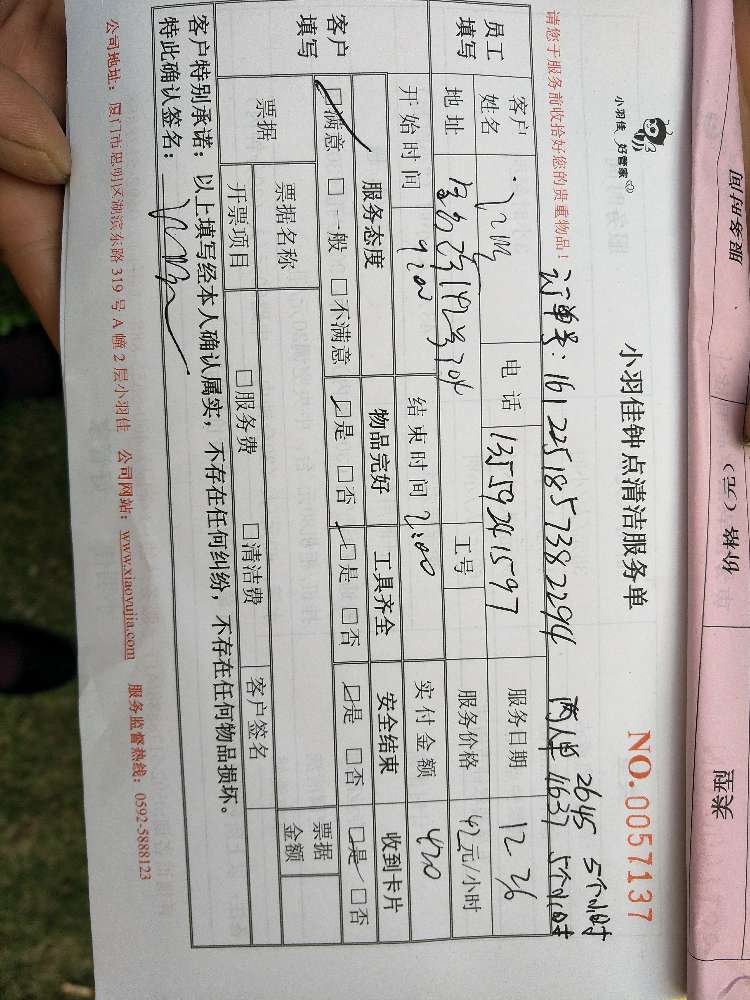 小羽佳 好管家
小羽佳钟点清洁服务单
NO.0057137
请您于服务前收拾好您的贵重物品!
订单号:16122518573822294 两人单 11637 5个小时
2645 5个小时
员工填写
客户姓名
电话 13559241597
服务日期 12 26
地址
工号
服务价格 42元/小时
开始时间 9:00
结束时间 2:00
实付金额 420
客户填写
服务态度
物品完好
工具齐全
安全结束
收到卡片
□满意 □一般 □不满意
□是 □否
□是 □否
□是 □否
□是 □否
票据
票据名称
票据金额
开票项目
□服务费 □清洁费
客户签名
客户特别承诺:以上填写经本人确认属实,不存在任何纠纷,不存在任何物品损坏。
特此确认签名:
公司地址:厦门市思明区湖滨东路 319 号 A 幢 2 层小羽佳 公司网站:www.xiaoyujia.com 服务监督热线:0592-5888123
服务时间
价格(元)
类型